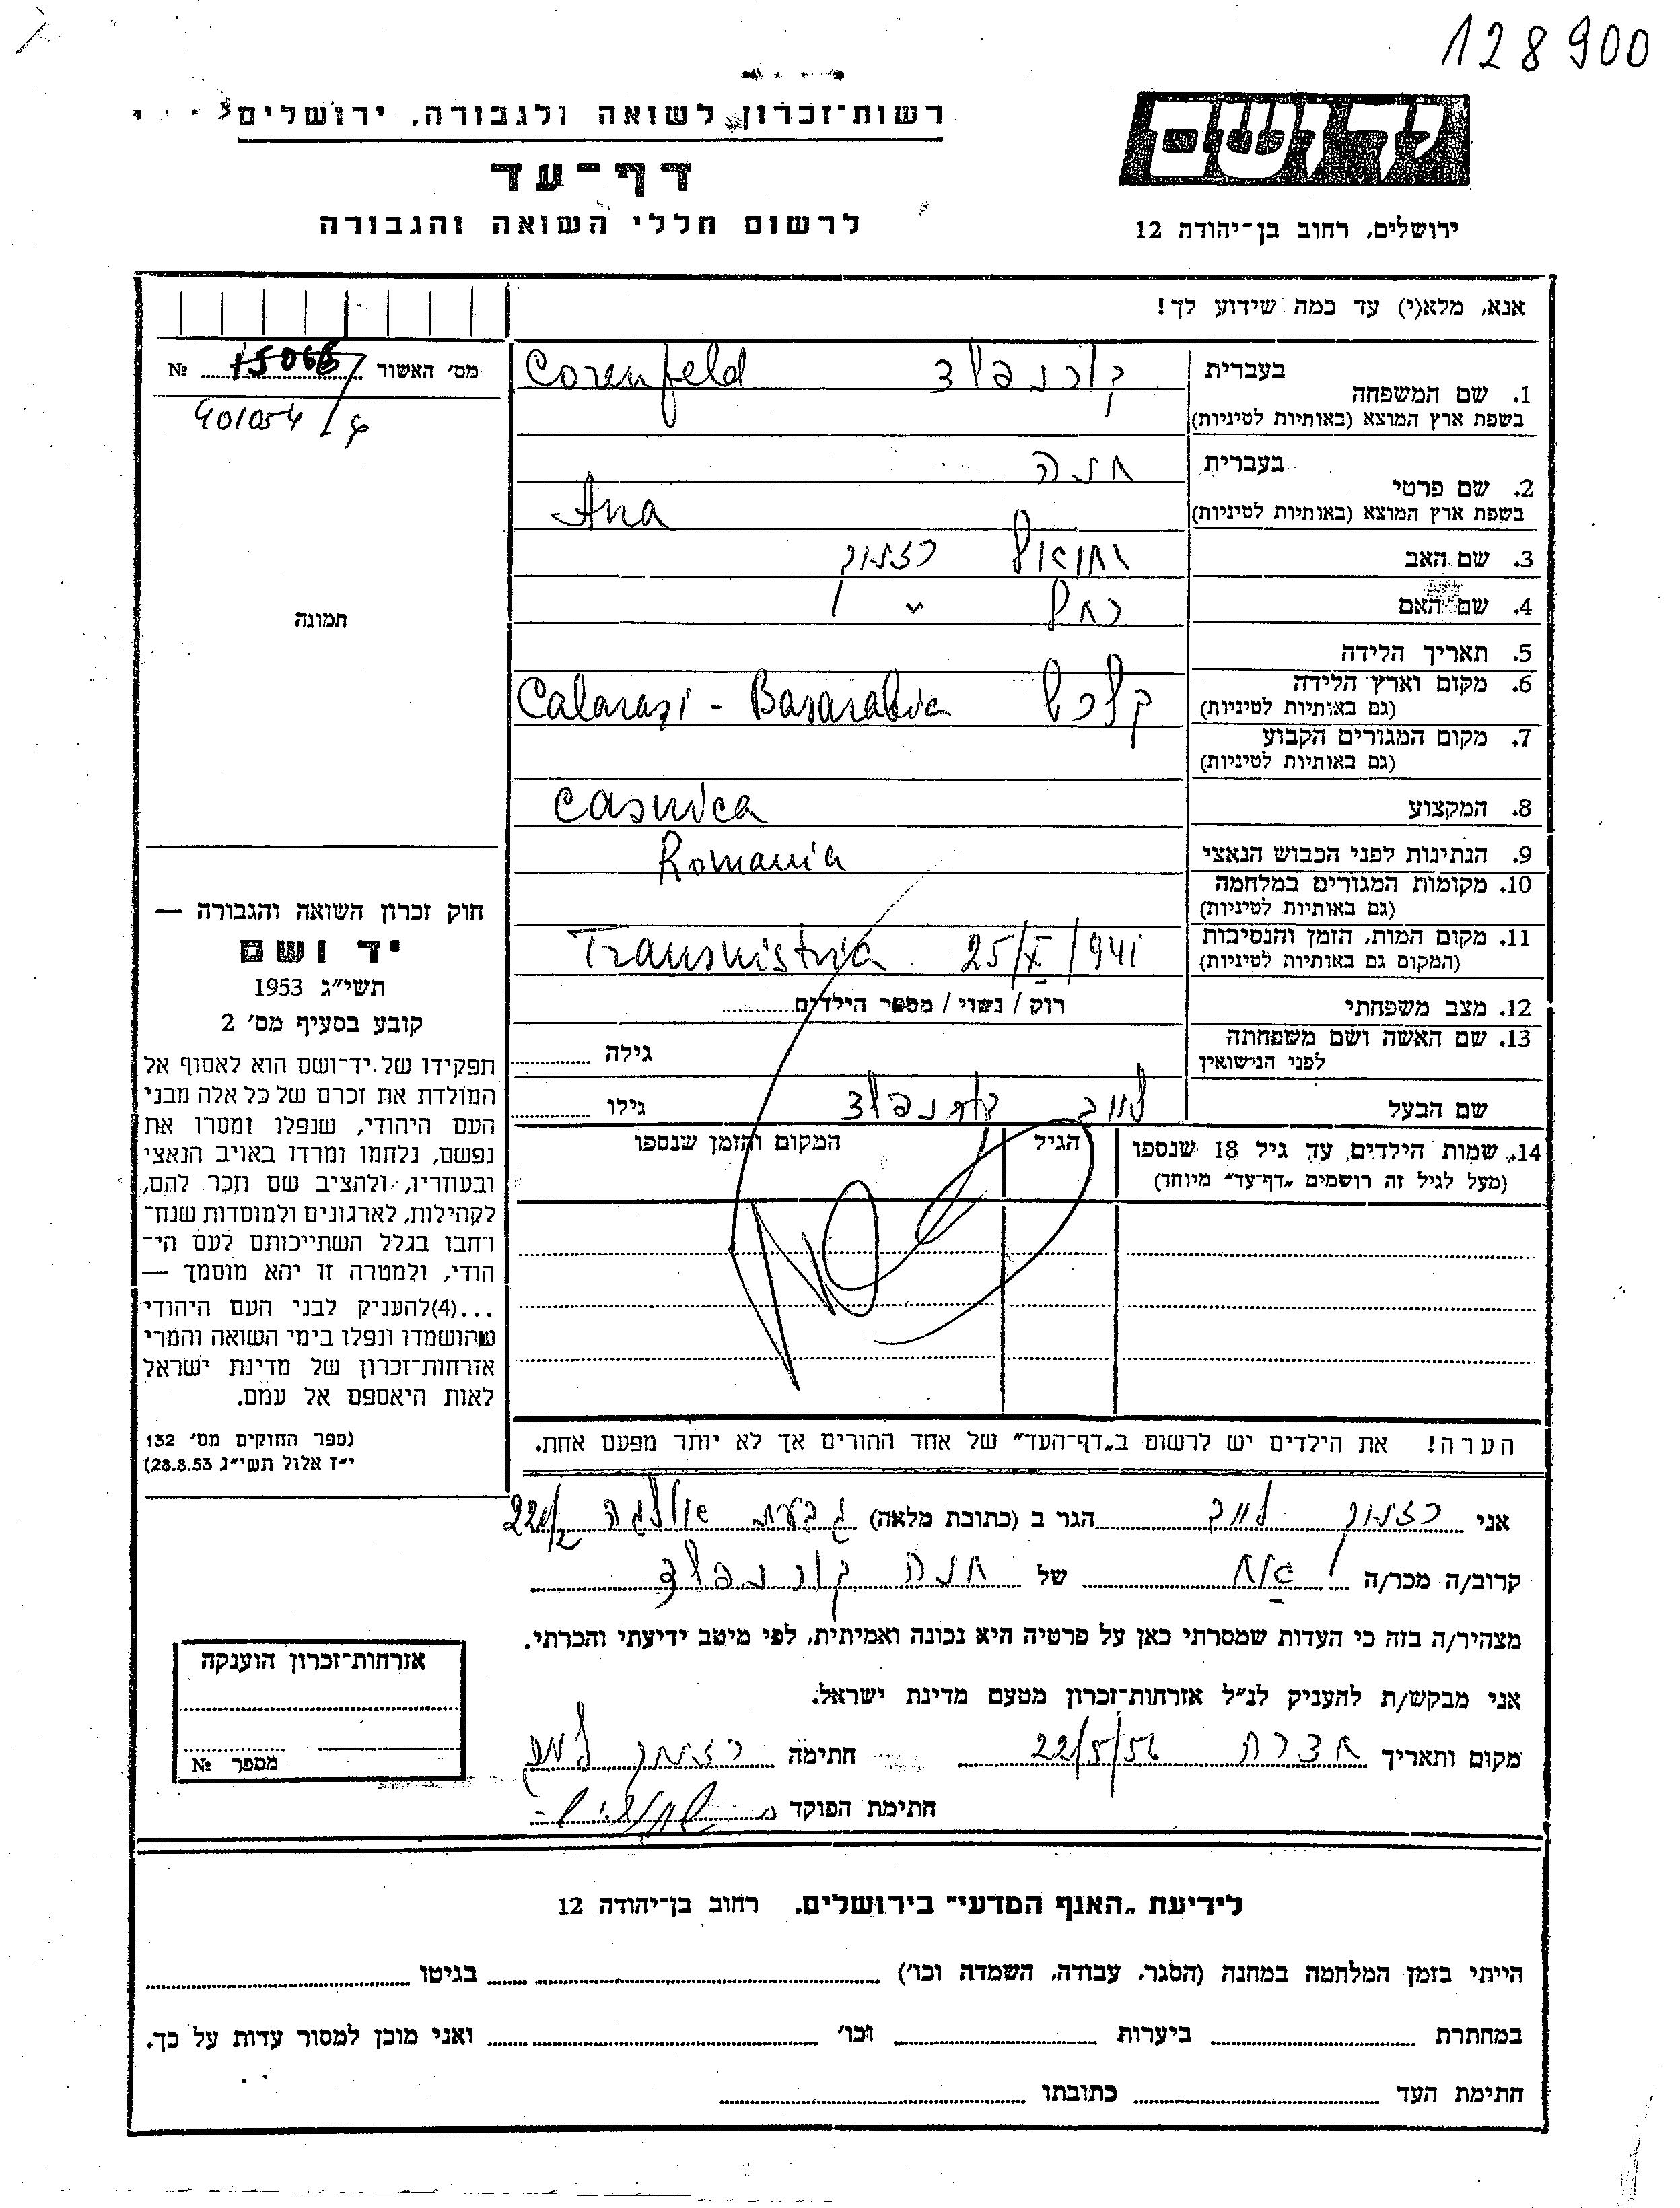 128900
רשות־זכרון לשואה ולגבורה, ירושלים
דף־עד
לרשום חללי השואה והגבורה
ידושם
ירושלים, רחוב בן־יהודה 12
אנא, מלא(י) עד כמה שידוע לך!
מס׳ האשור 15066 №
901054/
תמונה
1. שם המשפחה בעברית קורנפלד Corenfeld
בשפת ארץ המוצא (באותיות לטיניות)
2. שם פרטי בעברית חנה
בשפת ארץ המוצא (באותיות לטיניות) Ana
3. שם האב
4. שם האם רחל "
5. תאריך הלידה
6. מקום וארץ הלידה קלרש Calarasi - Basarabia
(גם באותיות לטיניות)
7. מקום המגורים הקבוע
(גם באותיות לטיניות)
8. המקצוע casnica
9. הנתינות לפני הכבוש הנאצי Romania
10. מקומות המגורים במלחמה
(גם באותיות לטיניות)
11. מקום המות, הזמן והנסיבות Transnistria 25/X/941
(המקום גם באותיות לטיניות)
12. מצב משפחתי רוק / נשוי / מספר הילדים
13. שם האשה ושם משפחתה גילה
לפני הנישואין
שם הבעל קורנפלד גילו
14. שמות הילדים עד גיל 18 שנספו הגיל המקום והזמן שנספו
(מעל לגיל זה רושמים „דף־עד״ מיוחד)
הערה! את הילדים יש לרשום ב„דף־העד״ של אחד ההורים אך לא יותר מפעם אחת.
חוק זכרון השואה והגבורה —
יד ושם
תשי״ג 1953
קובע בסעיף מס׳ 2
תפקידו של יד־ושם הוא לאסוף אל
המולדת את זכרם של כל אלה מבני
העם היהודי, שנפלו ומסרו את
נפשם, נלחמו ומרדו באויב הנאצי
ובעוזריו, ולהציב שם וזכר להם,
לקהילות, לארגונים ולמוסדות שנח־
רבו בגלל השתייכותם לעם הי־
הודי, ולמטרה זו יהא מוסמך —
...(4)להעניק לבני העם היהודי
שהושמדו ונפלו בימי השואה והמרי
אזרחות־זכרון של מדינת ישראל
לאות היאספם אל עמם.
(ספר החוקים מס׳ 132
י״ז אלול תשי״ג 28.8.53)
אני הגר ב (כתובת מלאה) גבעת אולגה 221/2
קרוב/ה מכר/ה אח של חנה קורנפלד
מצהיר/ה בזה כי העדות שמסרתי כאן על פרטיה היא נכונה ואמיתית, לפי מיטב ידיעתי והכרתי.
אני מבקש/ת להעניק לנ״ל אזרחות־זכרון מטעם מדינת ישראל.
מקום ותאריך חדרה 22/5/56 חתימה
חתימת הפוקד
אזרחות־זכרון הוענקה
מספר №
לידיעת „האגף המדעי״ בירושלים. רחוב בן־יהודה 12
הייתי בזמן המלחמה במחנה (הסגר, עבודה, השמדה וכו׳) בגיטו
במחתרת ביערות וכו׳ ואני מוכן למסור עדות על כך.
חתימת העד כתובתו